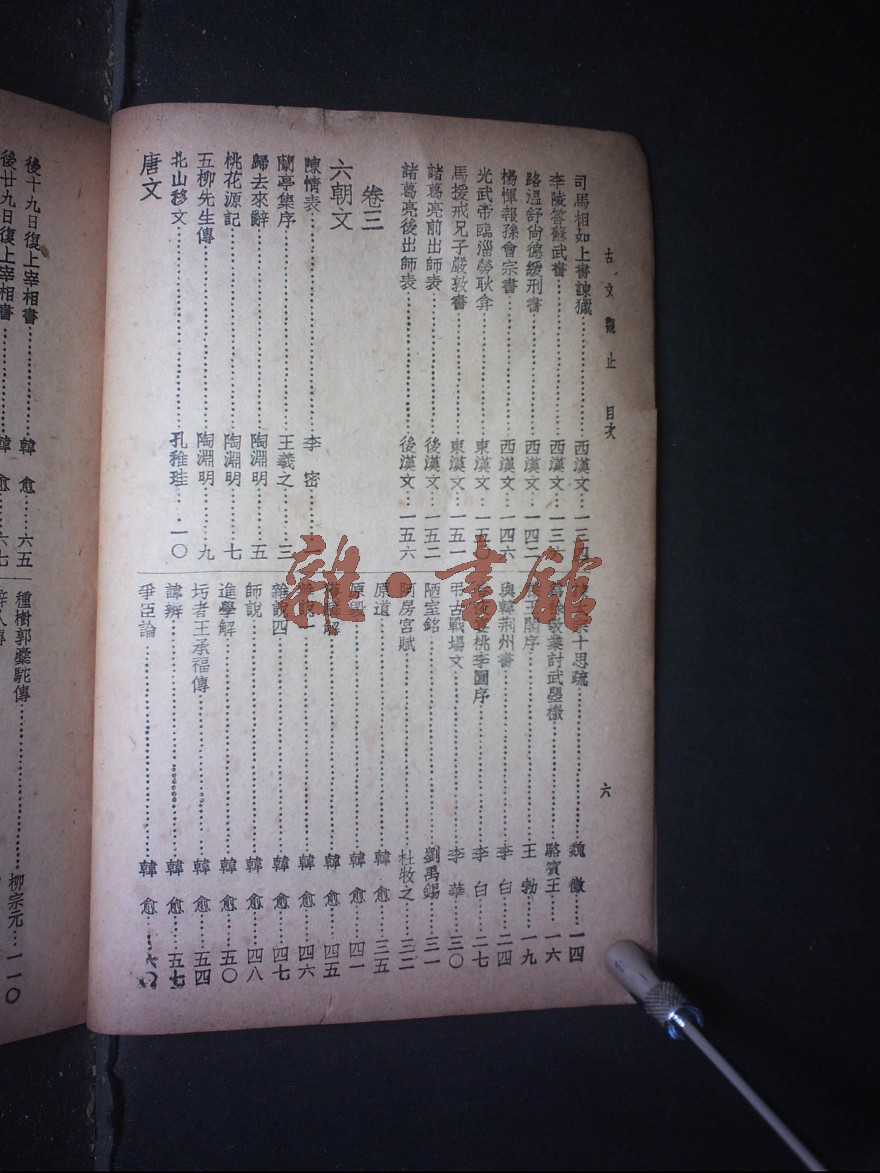 古文觀止 目次 六
司馬相如上書諫獵 西漢文 一三四
李陵答蘇武書 西漢文 一三六
路溫舒尚德緩刑書 西漢文 一四二
楊惲報孫會宗書 西漢文 一四六
光武帝臨淄勞耿弇 東漢文 一五〇
馬援戒兄子嚴敦書 東漢文 一五一
諸葛亮前出師表 後漢文 一五二
諸葛亮後出師表 後漢文 一五六
卷三
六朝文
陳情表 李密 一
蘭亭集序 王羲之 三
歸去來辭 陶淵明 五
桃花源記 陶淵明 七
五柳先生傳 陶淵明 九
北山移文 孔稚珪 一〇
唐文
十思疏 魏徵 一四
敬業討武曌檄 駱賓王 一六
王閣序 王勃 一九
與韓荊州書 李白 二四
桃李園序 李白 二七
弔古戰場文 李華 三〇
陋室銘 劉禹錫 三一
阿房宮賦 杜牧之 三二
原道 韓愈 三五
原毀 韓愈 四一
獲麟解 韓愈 四五
雜說一 韓愈 四六
雜說四 韓愈 四七
師說 韓愈 四八
進學解 韓愈 五〇
圬者王承福傳 韓愈 五四
諱辨 韓愈 五七
爭臣論 韓愈 六〇
後十九日復上宰相書 韓愈 六五
後廿九日復上宰相書 韓愈 六七
種樹郭橐駝傳 柳宗元 一一〇
梓人傳
雜·書館